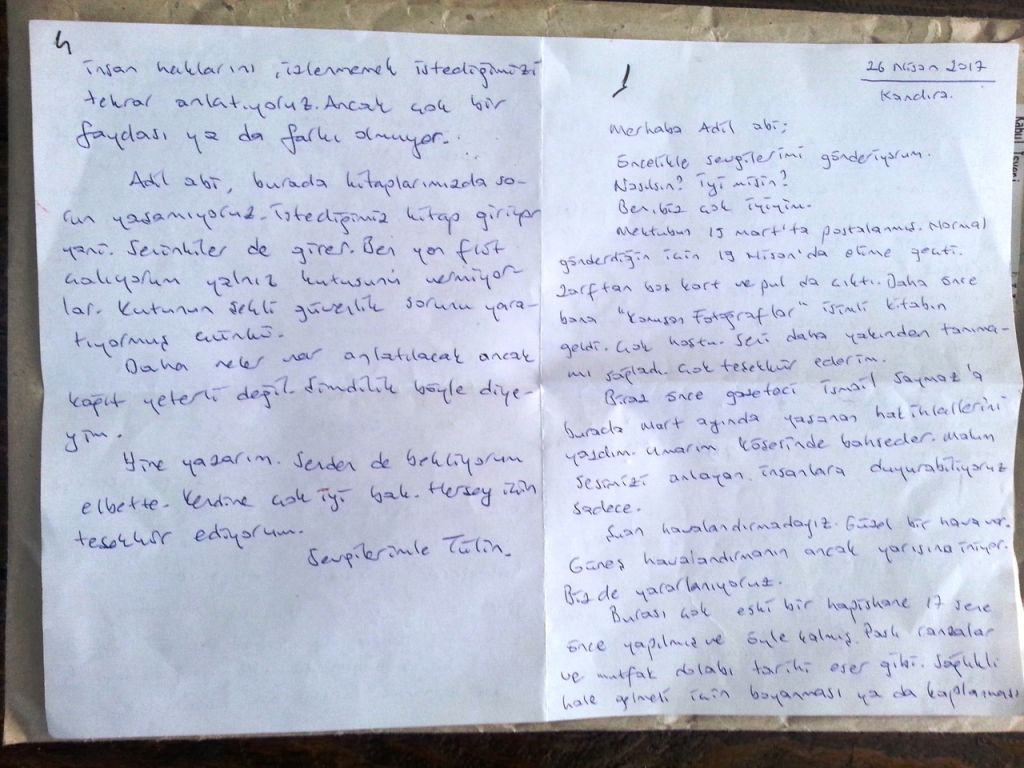 1
26 Nisan 2017
Kandıra.
Merhaba Adil abi;
Öncelikle sevgilerimi gönderiyorum.
Nasılsın? İyi misin?
Ben, biz çok iyiyim.
Mektubun 15 Mart'ta postalanmış. Normal
gönderdiğin için 19 Nisan'da elime geçti.
Zarftan boş kart ve pul da çıktı. Daha önce
bana "Konuşan Fotoğraflar" isimli kitabın
geldi. Çok hoştu. Seni daha yakından tanıma-
mı sağladı. Çok teşekkür ederim.
Biraz önce gazeteci İsmail Saymaz'a
burada Mart ayında yaşanan hak ihlallerini
yazdım. Umarım köşesinde bahseder. Malum
sesimizi anlayan insanlara duyurabiliyoruz
sadece.
Şuan havalandırmadayız. Güzel bir hava var.
Güneş havalandırmanın ancak yarısına iniyor.
Biz de yararlanıyoruz.
Burası çok eski bir hapishane 17 sene
önce yapılmış ve öyle kalmış. Paslı ranzalar
ve mutfak dolabı tarihi eser gibi. Sağlıklı
hale gelmeli için boyanması ya da kaplanması
4
insan haklarını, izlenmemek istediğimizi
tekrar anlatıyoruz. Ancak çok bir
faydası ya da farkı olmuyor..
Adil abi, burada kitaplarımızda so-
run yaşamıyoruz. İstediğimiz kitap giriyor
yani. Seninkiler de girer. Ben yan flüt
çalıyorum yalnız kutusunu vermiyor-
lar. Kutunun şekli güvenlik sorunu yara-
tıyormuş çünkü.
Daha neler var anlatılacak ancak
kağıt yeterli değil. Şimdilik böyle diye-
yim.
Yine yazarım. Senden de bekliyorum
elbette. Kendine çok iyi bak. Herşey için
teşekkür ediyorum.
Sevgilerimle Tülin.